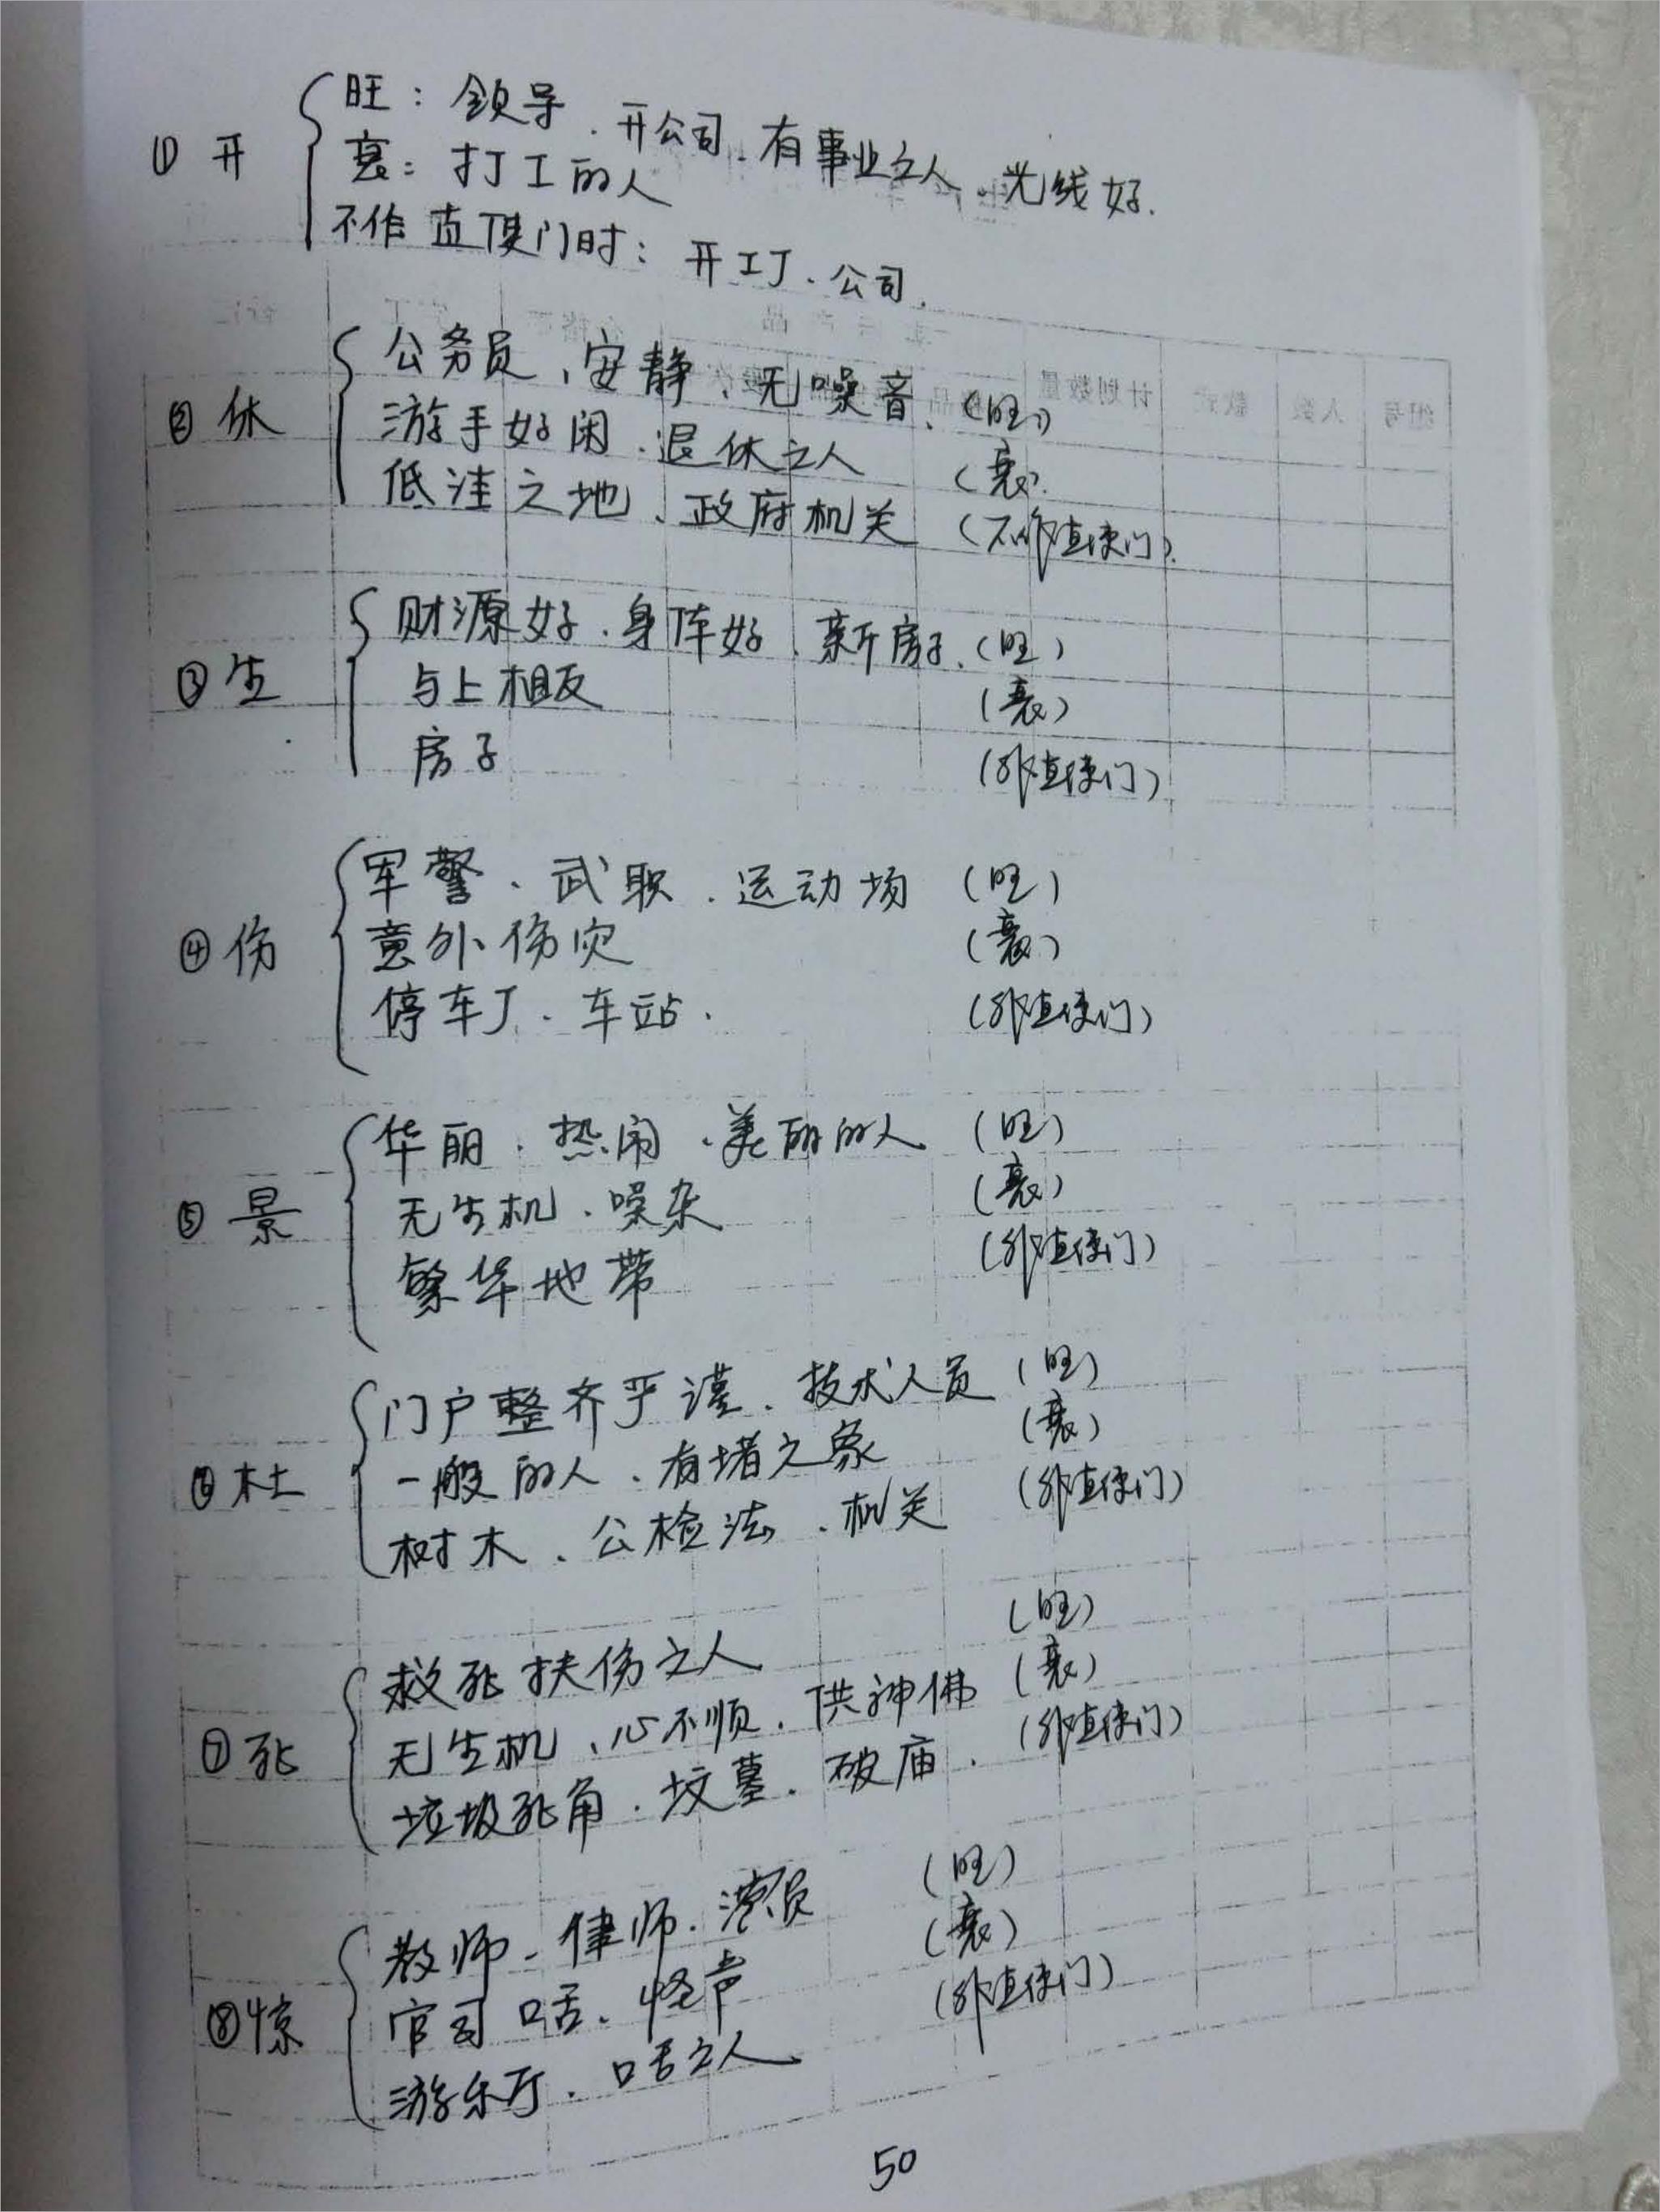 ① 开
旺：领导．开公司．有事业之人．光线好．
衰：打工的人
不作直使门时：开工厂．公司．
② 休
公务员、安静、无噪音．（旺）
游手好闲．退休之人（衰）
低洼之地、政府机关（不作直使门）
③ 生
财源好．身体好．新房子．（旺）
与上相反（衰）
房子（非直使门）
④ 伤
军警、武职．运动场（旺）
意外伤灾（衰）
停车厂．车站．（非直使门）
⑤ 景
华丽．热闹．美丽的人（旺）
无生机．噪杂（衰）
繁华地带（非直使门）
⑥ 杜
门户整齐严谨．技术人员（旺）
一般的人．有堵之象（衰）
树木．公检法．机关（非直使门）
⑦ 死
救死扶伤之人（旺）
无生机、心不顺．供神佛（衰）
垃圾死角．坟墓．破庙．（非直使门）
⑧ 惊
教师．律师．演员（旺）
官司口舌．怪声（衰）
游乐厅．口舌之人（非直使门）
50